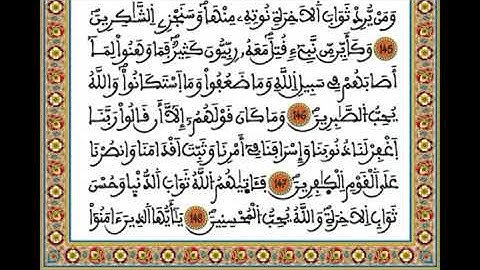 وَمَنْ يُّرِدْ ثَوَابَ اَ۬لَاخِرَةِ نُوتِهِۦ مِنْهَاۖ وَسَنَجْزِے اِ۬لشَّٰكِرِينَۖ
145 وَكَأَيِّن مِّن نَّبِےٓءٖ قُتِلَ مَعَهُۥ رِبِّيُّونَ كَثِيرٞ فَمَا وَهَنُواْ لِمَآ
أَصَابَهُمْ فِے سَبِيلِ اِ۬للَّهِ وَمَا ضَعُفُواْ وَمَا اَ۪سْتَكَانُواْۖ وَاللَّهُ
يُحِبُّ اُ۬لصَّٰبِرِينَۖ 146 وَمَا كَانَ قَوْلَهُمُۥٓ إِلَّآ أَن قَالُواْ رَبَّنَا
اَ۪غْفِرْ لَنَا ذُنُوبَنَا وَإِسْرَافَنَا فِےٓ أَمْرِنَا وَثَبِّتَ اَقْدَامَنَا وَانصُرْنَا
عَلَي اَ۬لْقَوْمِ اِ۬لْكٰ۪فِرِينَۖ 147 فَـَٔات۪يٰهُمُ اُ۬للَّهُ ثَوَابَ اَ۬لدُّنْي۪ا وَحُسْنَ
ثَوَابِ اِ۬لَاخِرَةِۖ وَاللَّهُ يُحِبُّ اُ۬لْمُحْسِنِينَۖ 148 يَٰٓأَيُّهَا اَ۬لذِينَ ءَامَنُوٓاْ